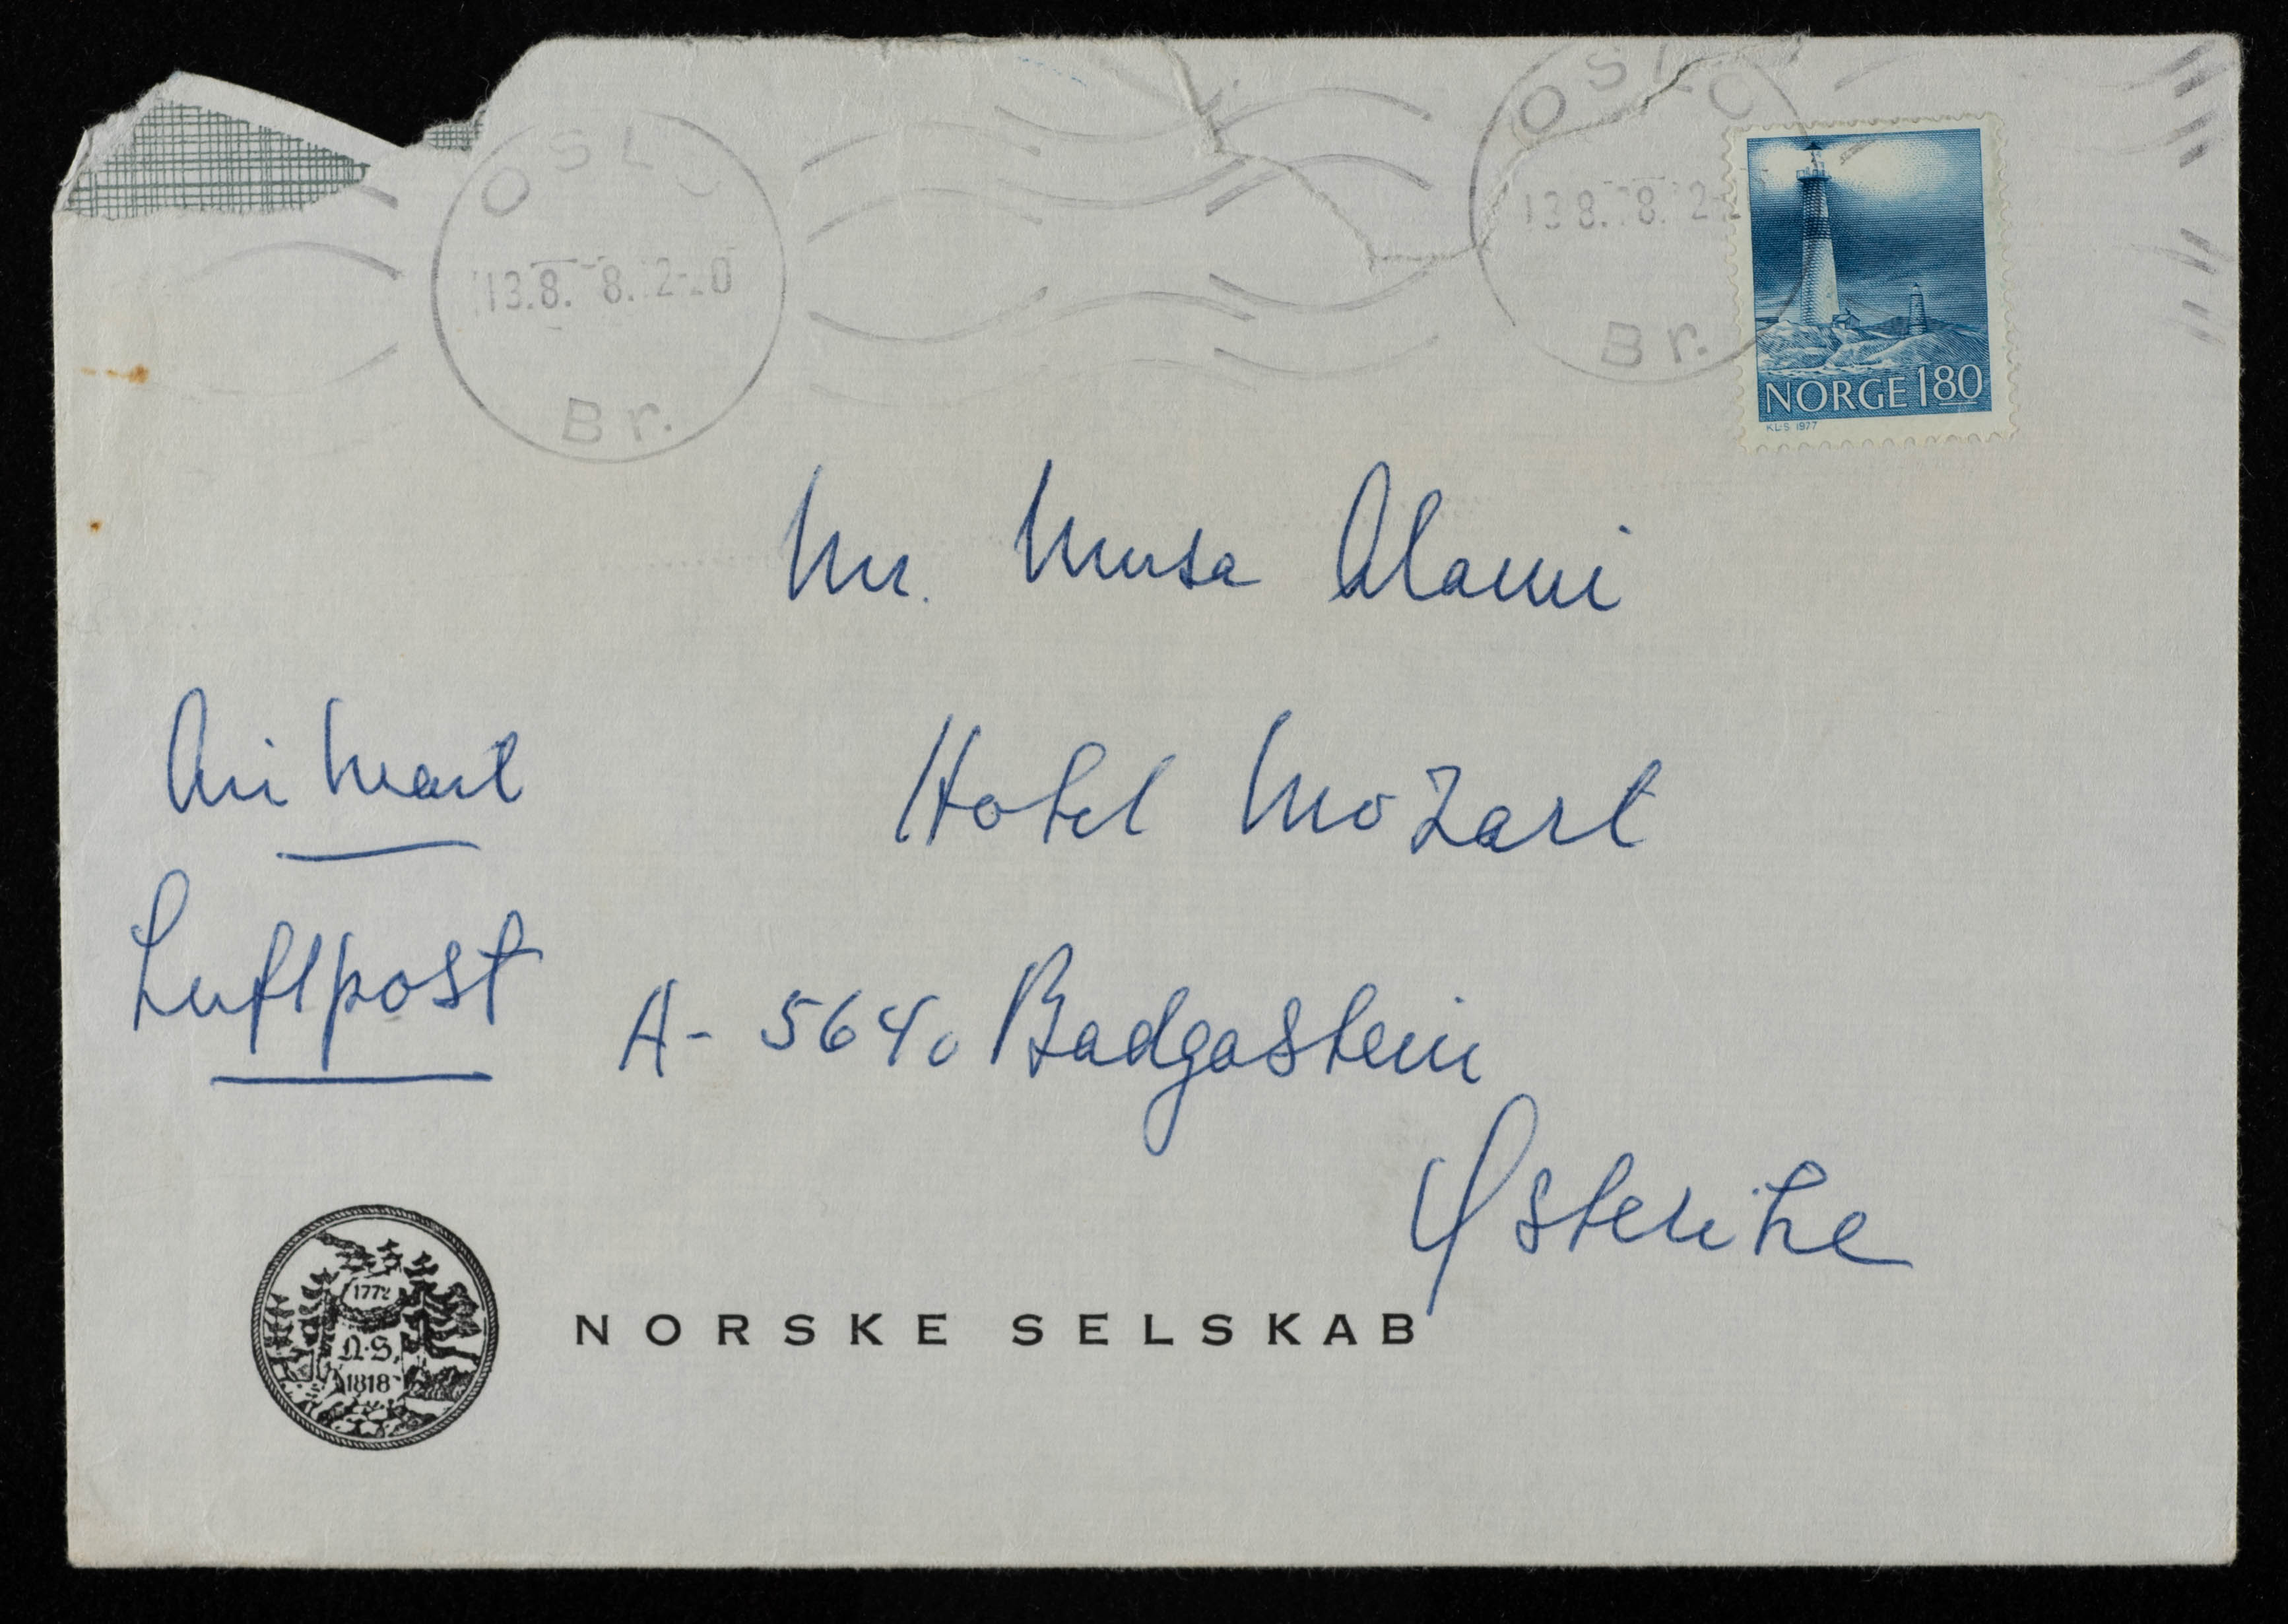 OSLO
OSLO
13.8. 8. 12-20
13 8. 8. 12
Br.
Br.
NORGE 180
K.L.S 1977
Mr. Musa Alami
Air Mail
Hotel Mozart
Luftpost
A - 5640 Badgastein
Østerike
1772
N.S.
1818
NORSKE SELSKAB